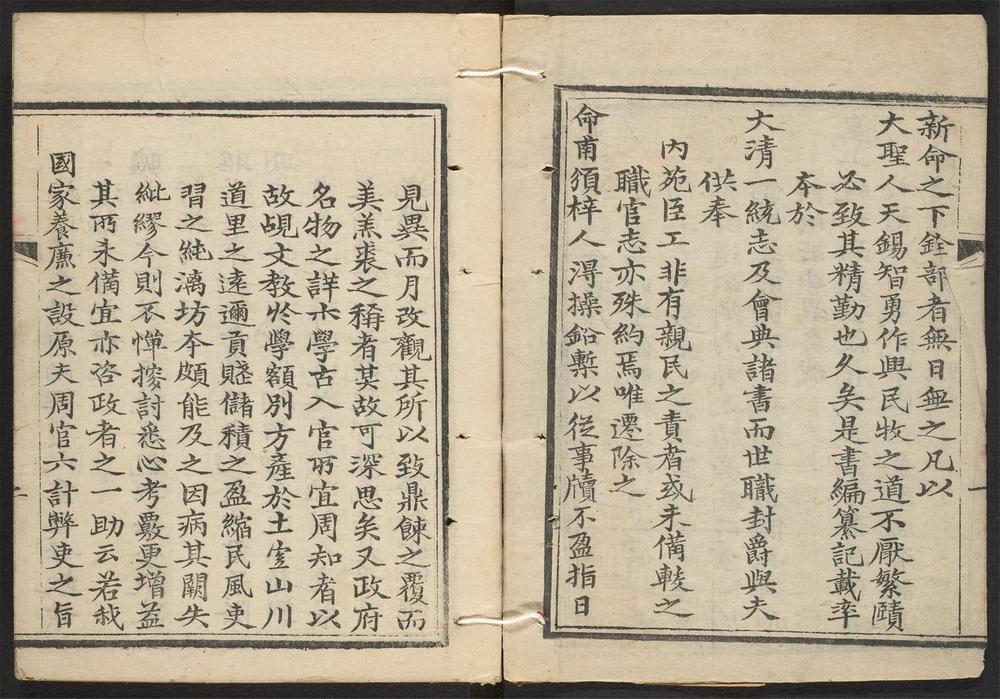 新命之下銓部者無日無之凡以
大聖人天錫智勇作興民牧之道不厭繁賾
必致其精勤也久矣是書編纂記載率
本於
大清一統志及會典諸書而世職封爵與夫
供奉
內苑臣工非有親民之責者或未備較之
職官志亦殊約焉唯遷除之
命甫須梓人淂操鈆槧以從事牘不盈指日
見異而月改觀其所以致鼎餗之覆而
美羔裘之稱者其故可深思矣又政府
名物之詳亦學古入官所宜周知者以
故覘文教於學額別方產於土宜山川
道里之遠邇貢賤儲積之盈縮民風吏
習之純漓坊本頗能及之因病其闕失
紕繆今則不憚搜討悉心考覈更增益
其所未備宜亦咨政者之一助云若我
國家養廉之設原夫周官六計弊吏之旨